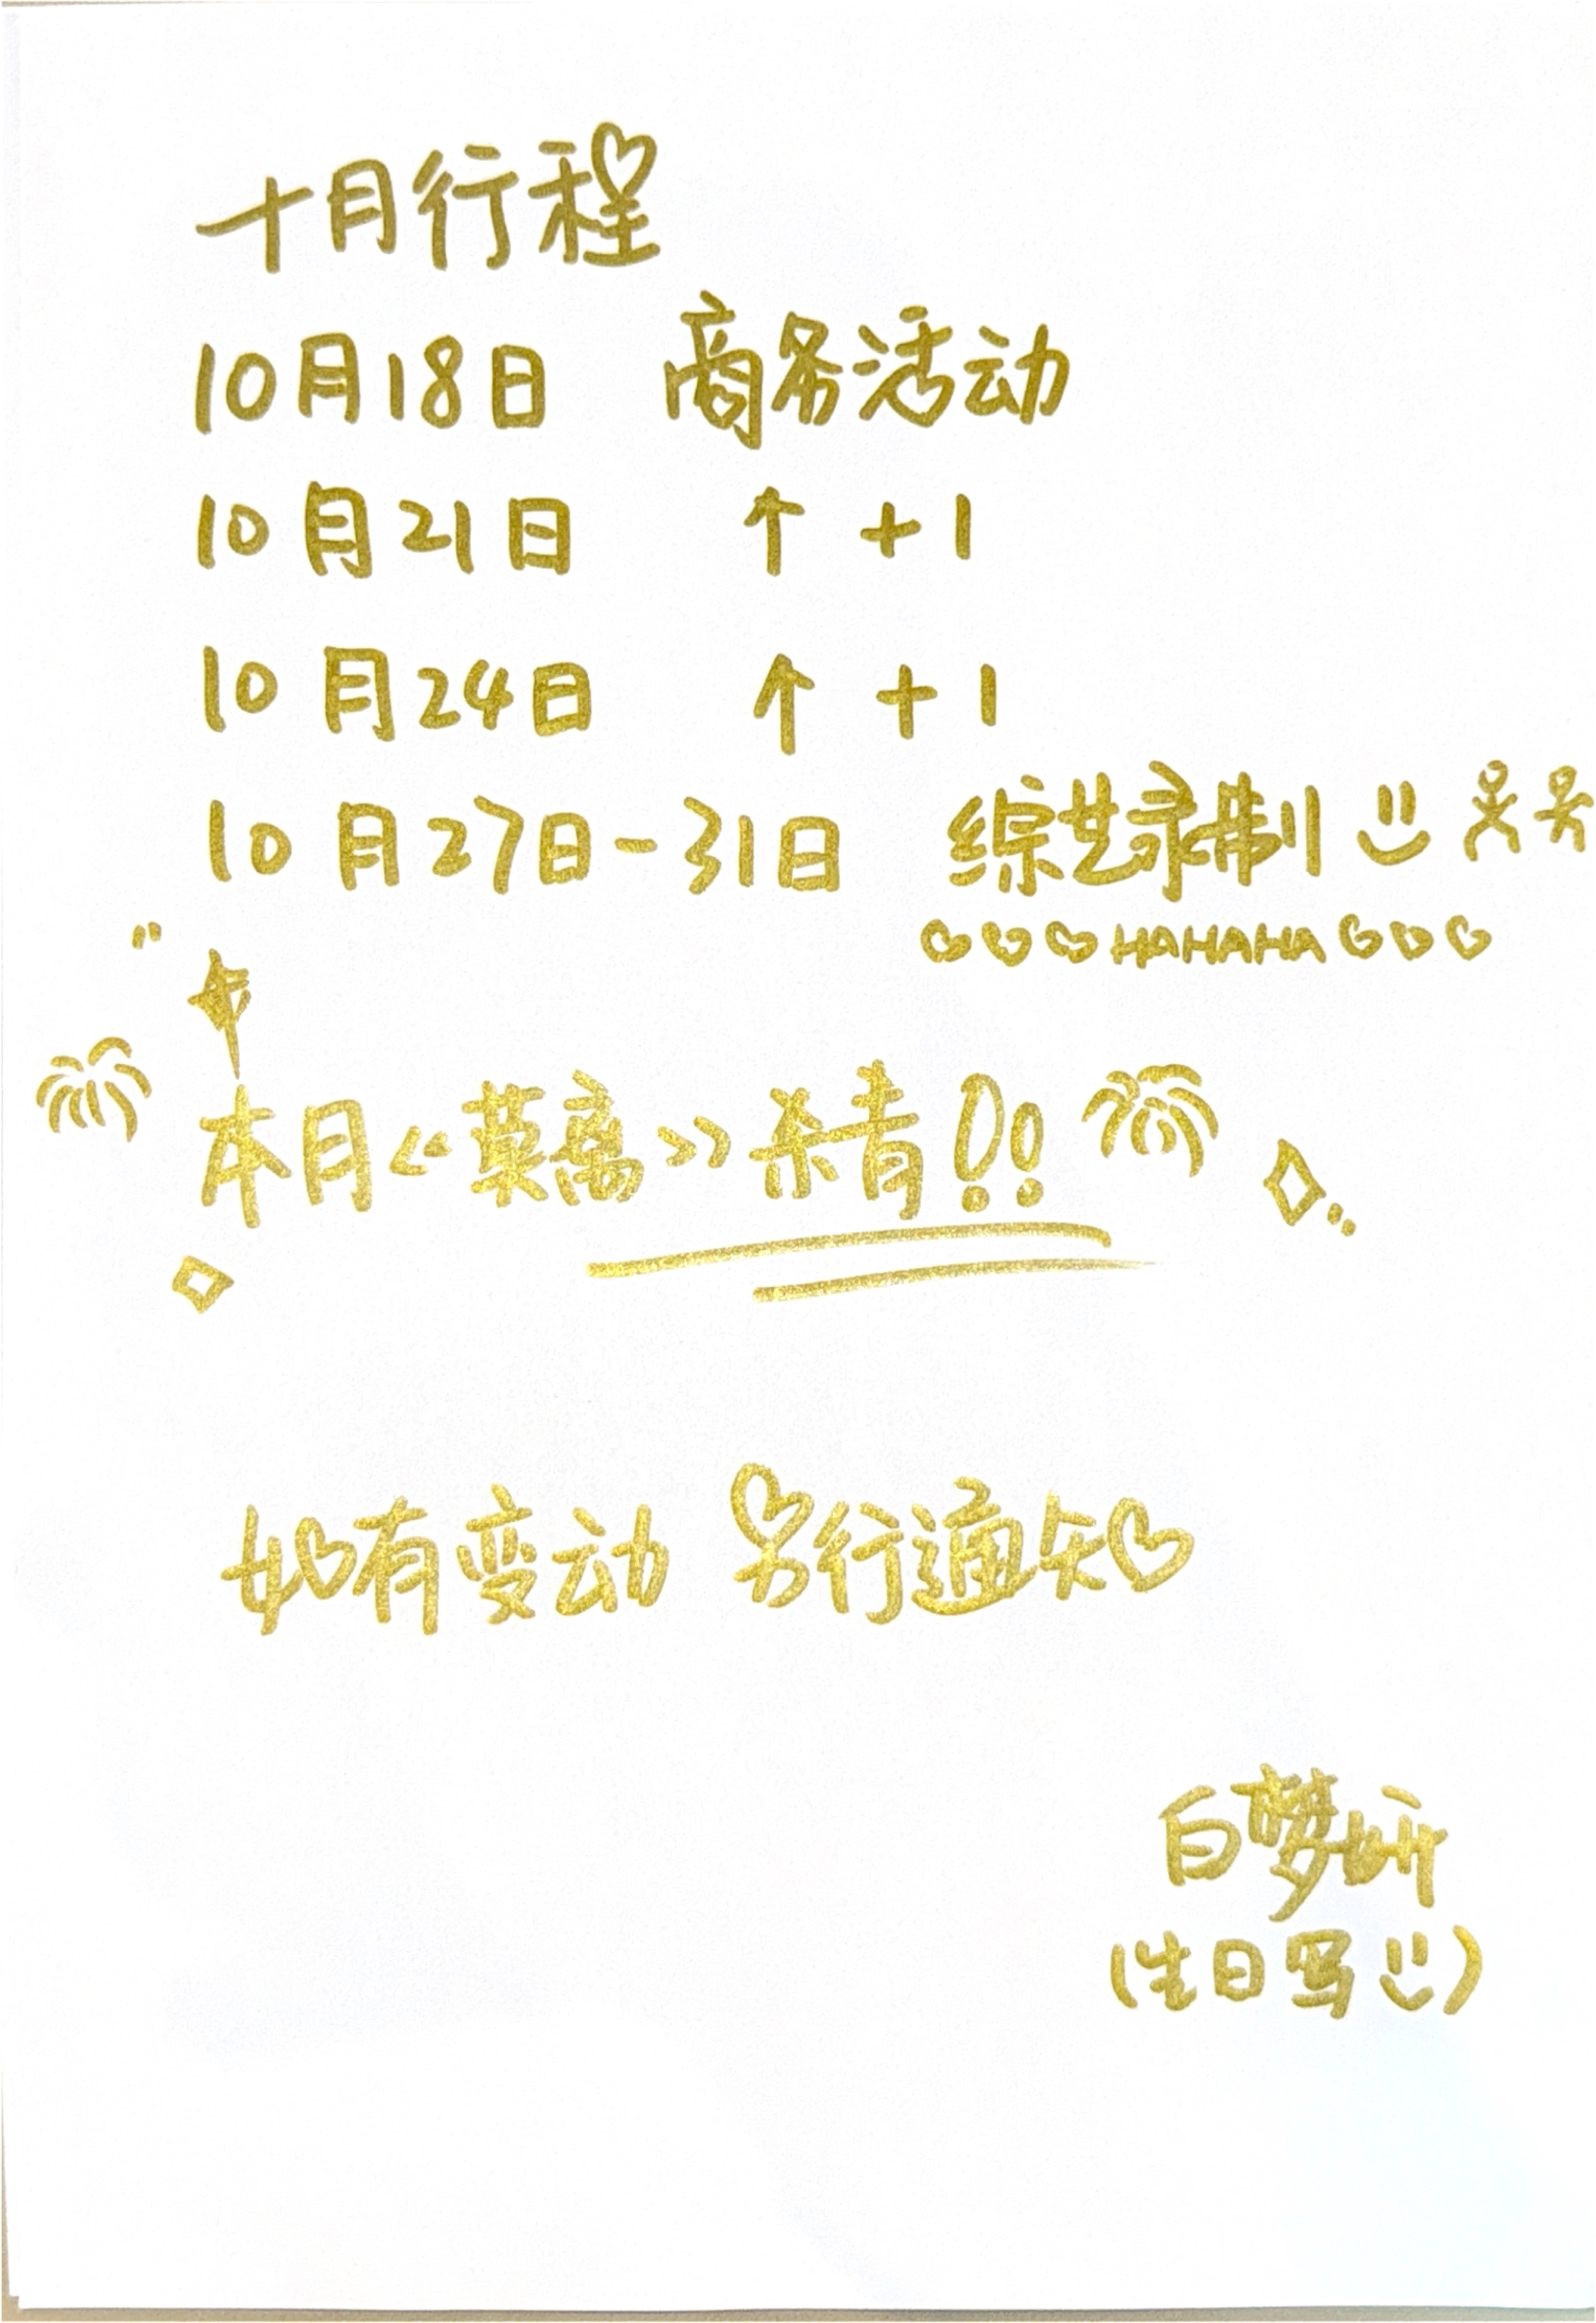 十月行程
10月18日 商务活动
10月21日 ↑ +1
10月24日 ↑ +1
10月27日-31日 综艺录制
HAHAHA
本月《蓠》杀青!!
如有变动 另行通知
白梦妍
(生日写)